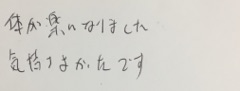 体が楽になりました
気持ちよかったです